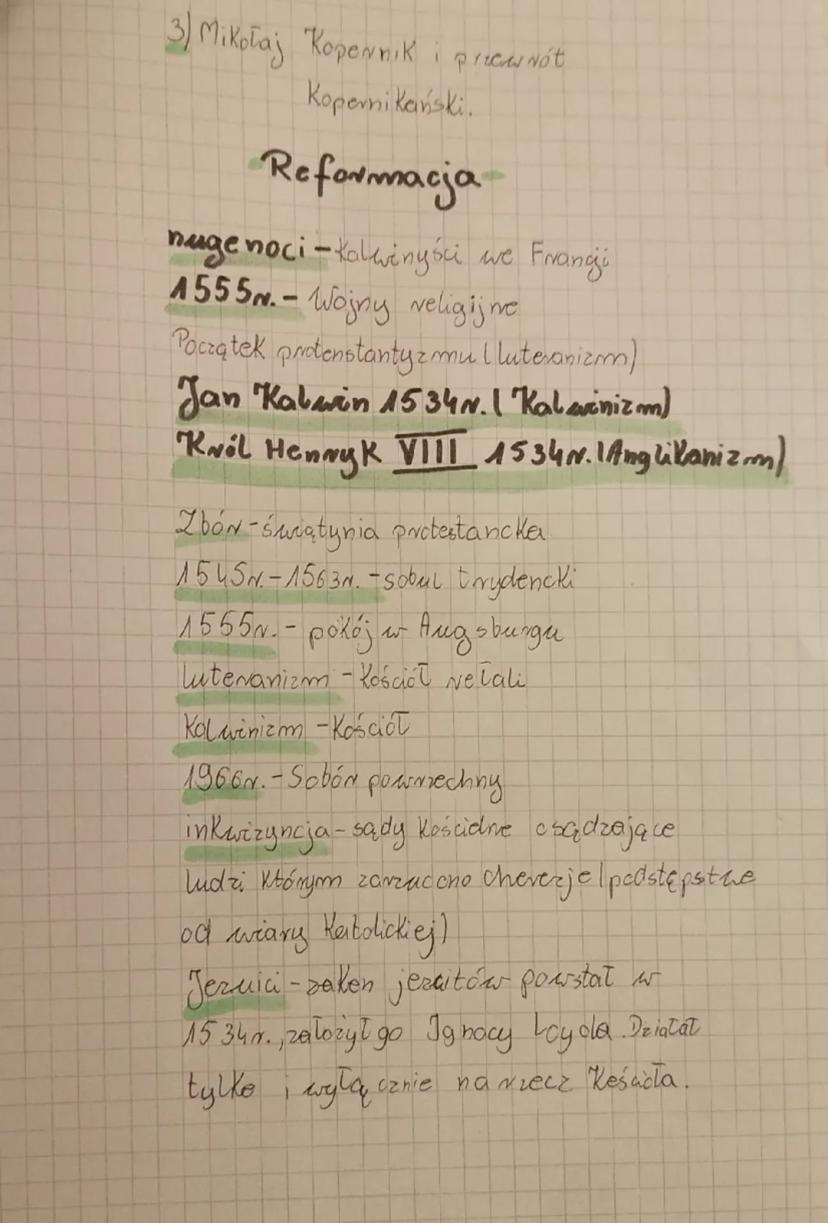 3) Mikołaj Kopernik i przewrót
Kopernikański.
Reformacja
hugenoci - kalwinyści we Francji
1555r. - Wojny religijne
Początek protenstantyzmu (luteranizm)
Jan Kalwin 1534r. (Kalwinizm)
Król Henryk VIII 1534r. (Anglikanizm)
Zbór - świątynia protestancka
1545r. - 1563r. - sobul trydencki
1555r. - pokój w Augsburgu
luteranizm - kościół
Kalwinizm - Kościół
1966r. - Sobór powrzechny
inkwizyncja - sądy kościelne osądzające
ludzi którym zarzucono cherezje (podstępstwe
od wiary katolickiej)
Jezuici - zakon jezuitów powstał w
1534r., założył go Ignacy Loyola. Działał
tylko i wyłącznie na rzecz Kościoła.